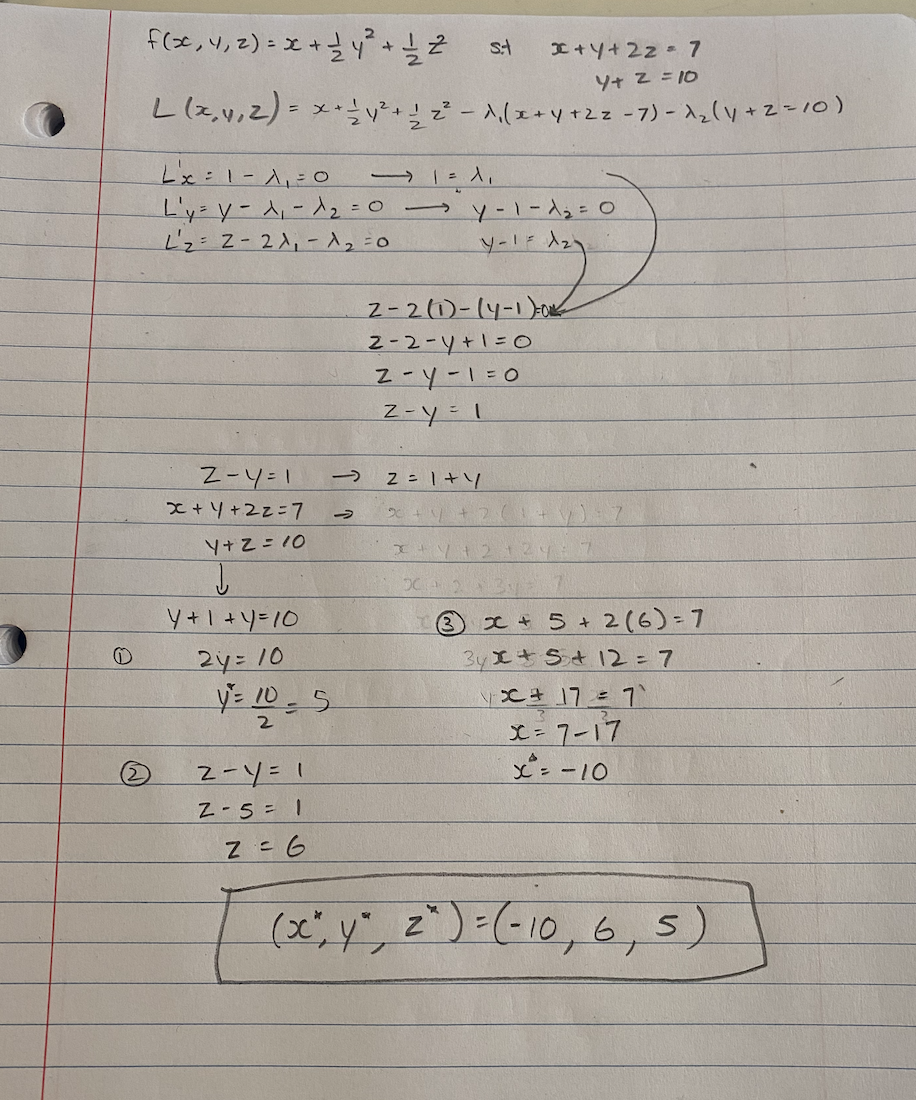 f(x, y, z) = x + 1/2 y² + 1/2 z² st x + y + 2z = 7
y + z = 10
L(x, y, z) = x + 1/2 y² + 1/2 z² - λ₁(x + y + 2z - 7) - λ₂(y + z - 10)
L'x = 1 - λ₁ = 0 → 1 = λ₁
L'y = y - λ₁ - λ₂ = 0 → y - 1 - λ₂ = 0
L'z = z - 2λ₁ - λ₂ = 0 y - 1 = λ₂
z - 2(1) - (y - 1) = 0
z - 2 - y + 1 = 0
z - y - 1 = 0
z - y = 1
z - y = 1 → z = 1 + y
x + y + 2z = 7 → x + y + 2(1 + y) = 7
y + z = 10 x + y + 2 + 2y = 7
↓ x + 2 + 3y = 7
y + 1 + y = 10
① 2y = 10
y* = 10/2 = 5
② z - y = 1
z - 5 = 1
z = 6
③ x + 5 + 2(6) = 7
x + 5 + 12 = 7
x + 17 = 7
x = 7 - 17
x* = -10
(x*, y*, z*) = (-10, 6, 5)